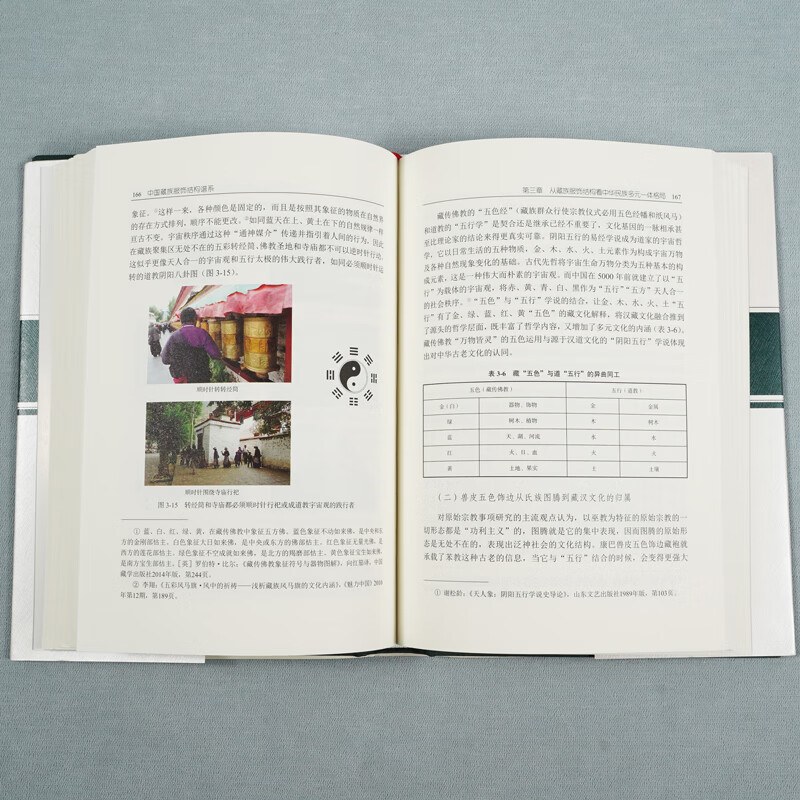 166 中国藏族服饰结构谱系
象征。①这样一来,各种颜色是固定的,而且是按照其象征的物质在自然界
的存在方式排列,顺序不能更改。②如同蓝天在上、黄土在下的自然规律一样
亘古不变。宇宙秩序通过这种“通神媒介”传递并指引着人间的行为,因此
在藏族聚集区无处不在的五彩转经筒、佛教圣地和寺庙都不可以逆时针行动。
这似乎更像天人合一的宇宙观和五行太极的伟大践行者,如同必须顺时针运
转的道教阴阳八卦图(图 3-15)。
顺时针转转经筒
顺时针围绕寺庙行祀
图 3-15 转经筒和寺庙都必须顺时针行祀或成道教宇宙观的践行者
① 蓝、白、红、绿、黄,在藏传佛教中象征五方佛。蓝色象征不动如来佛,是中央和东
方的金刚部怙主。白色象征大日如来佛,是中央或东方的佛部怙主。红色象征无量光佛,是
西方的莲花部怙主。绿色象征不空成就如来佛,是北方的羯磨部怙主。黄色象征宝生如来佛,
是南方宝生部怙主。[英]罗伯特·比尔:《藏传佛教象征符号与器物图解》,向红笳译,中国
藏学出版社2014年版,第244页。
② 李翔:《五彩风马旗·风中的祈祷——浅析藏族风马旗的文化内涵》,《魅力中国》2010
年第12期,第189页。
第三章 从藏族服饰结构看中华民族多元一体格局 167
藏传佛教的“五色经”(藏族群众行使宗教仪式必用五色经幡和纸风马)
和道教的“五行学”是契合还是继承已经不重要了,文化基因的一脉相承甚
至比理论家的结论来得更真实可靠。阴阳五行的易经学说成为道家的宇宙哲
学,它以日常生活的五种物质,金、木、水、火、土元素作为构成宇宙万物
及各种自然现象变化的基础。古代先哲将宇宙生命万物分类为五种基本的构
成元素,这是一种伟大而朴素的宇宙观。而中国在 5000 年前就建立了以“五
行”为载体的宇宙观,将赤、黄、青、白、黑作为“五行”“五方”天人合一
的社会秩序。①“五色”与“五行”学说的结合,让金、木、水、火、土“五
行”有了金、绿、蓝、红、黄“五色”的藏文化解释,将汉藏文化融合推到
了源头的哲学层面,既丰富了哲学内容,又增加了多元文化的内涵(表 3-6)。
藏传佛教“万物皆灵”的五色运用与源于汉道文化的“阴阳五行”学说体现
出对中华古老文化的认同。
表 3-6 藏“五色”与道“五行”的异曲同工
五色(藏传佛教) 五行(道教)
金(白) 器物、饰物 金 金属
绿 树木、植物 木 树木
蓝 天、湖、河流 水 水
红 火、日、血 火 火
黄 土地、果实 土 土壤
(二)兽皮五色饰边从氏族图腾到藏汉文化的归属
对原始宗教事项研究的主流观点认为,以巫教为特征的原始宗教的一
切形态都是“功利主义”的,图腾就是它的集中表现,因而图腾的原始形
态是无处不在的,表现出泛神社会的文化结构。康巴兽皮五色饰边藏袍就
承载了苯教这种古老的信息,当它与“五行”结合的时候,会变得更强大
① 谢松龄:《天人象:阴阳五行学说史导论》,山东文艺出版社1989年版,第103页。